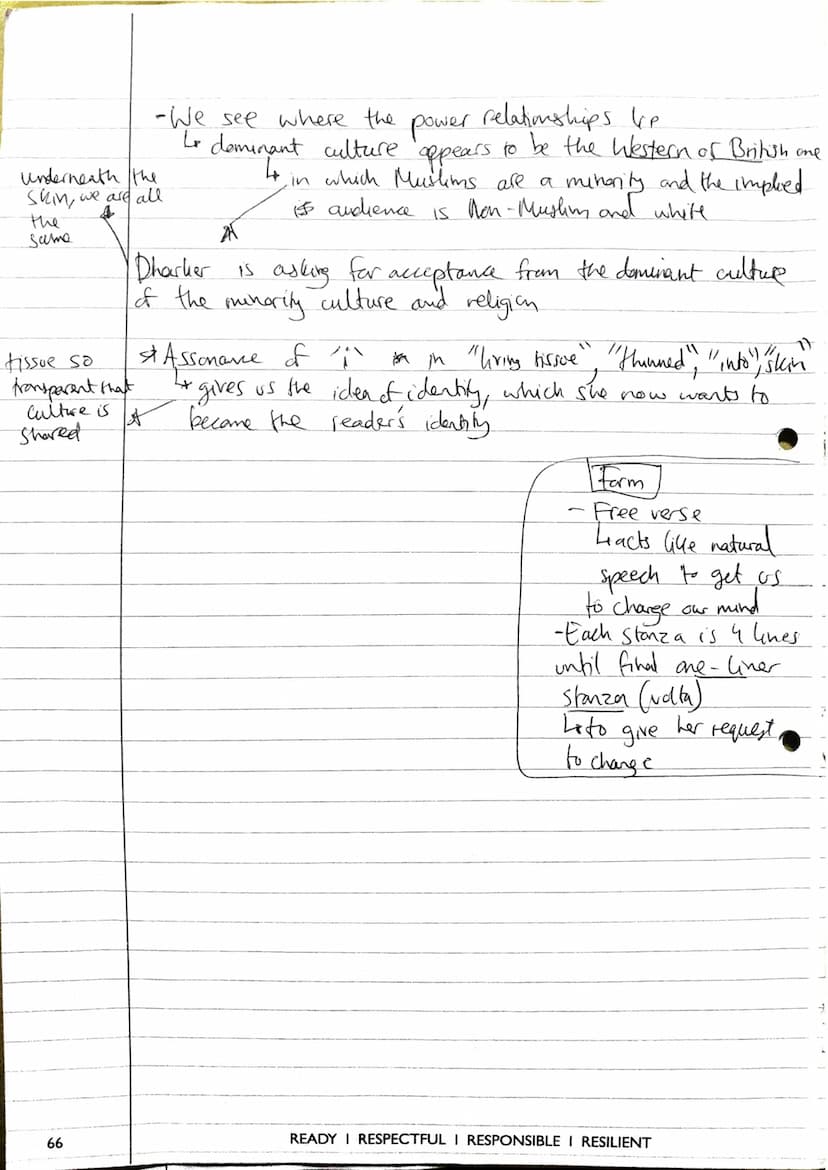 -We see where the power relationships lie
↳ dominant culture appears to be the Western of British one
↳ in which Muslims are a minority and the implied
audience is Non-Muslim and white
underneath the
skin, we are all
the
same
Dharker is asking for acceptance from the dominant culture
of the minority culture and religion
* Assonance of 'i' in "living tissue", "thinned", "into", "skin"
↳ gives us the idea of identity, which she now wants to
become the reader's identity
tissue so
transparent that
culture is
shared
Form
- Free verse
↳ acts like natural
speech to get us
to change our mind
-Each stanza is 4 lines
until final one-liner
stanza (volta)
↳ to give her request
to change
66
READY I RESPECTFUL I RESPONSIBLE I RESILIENT